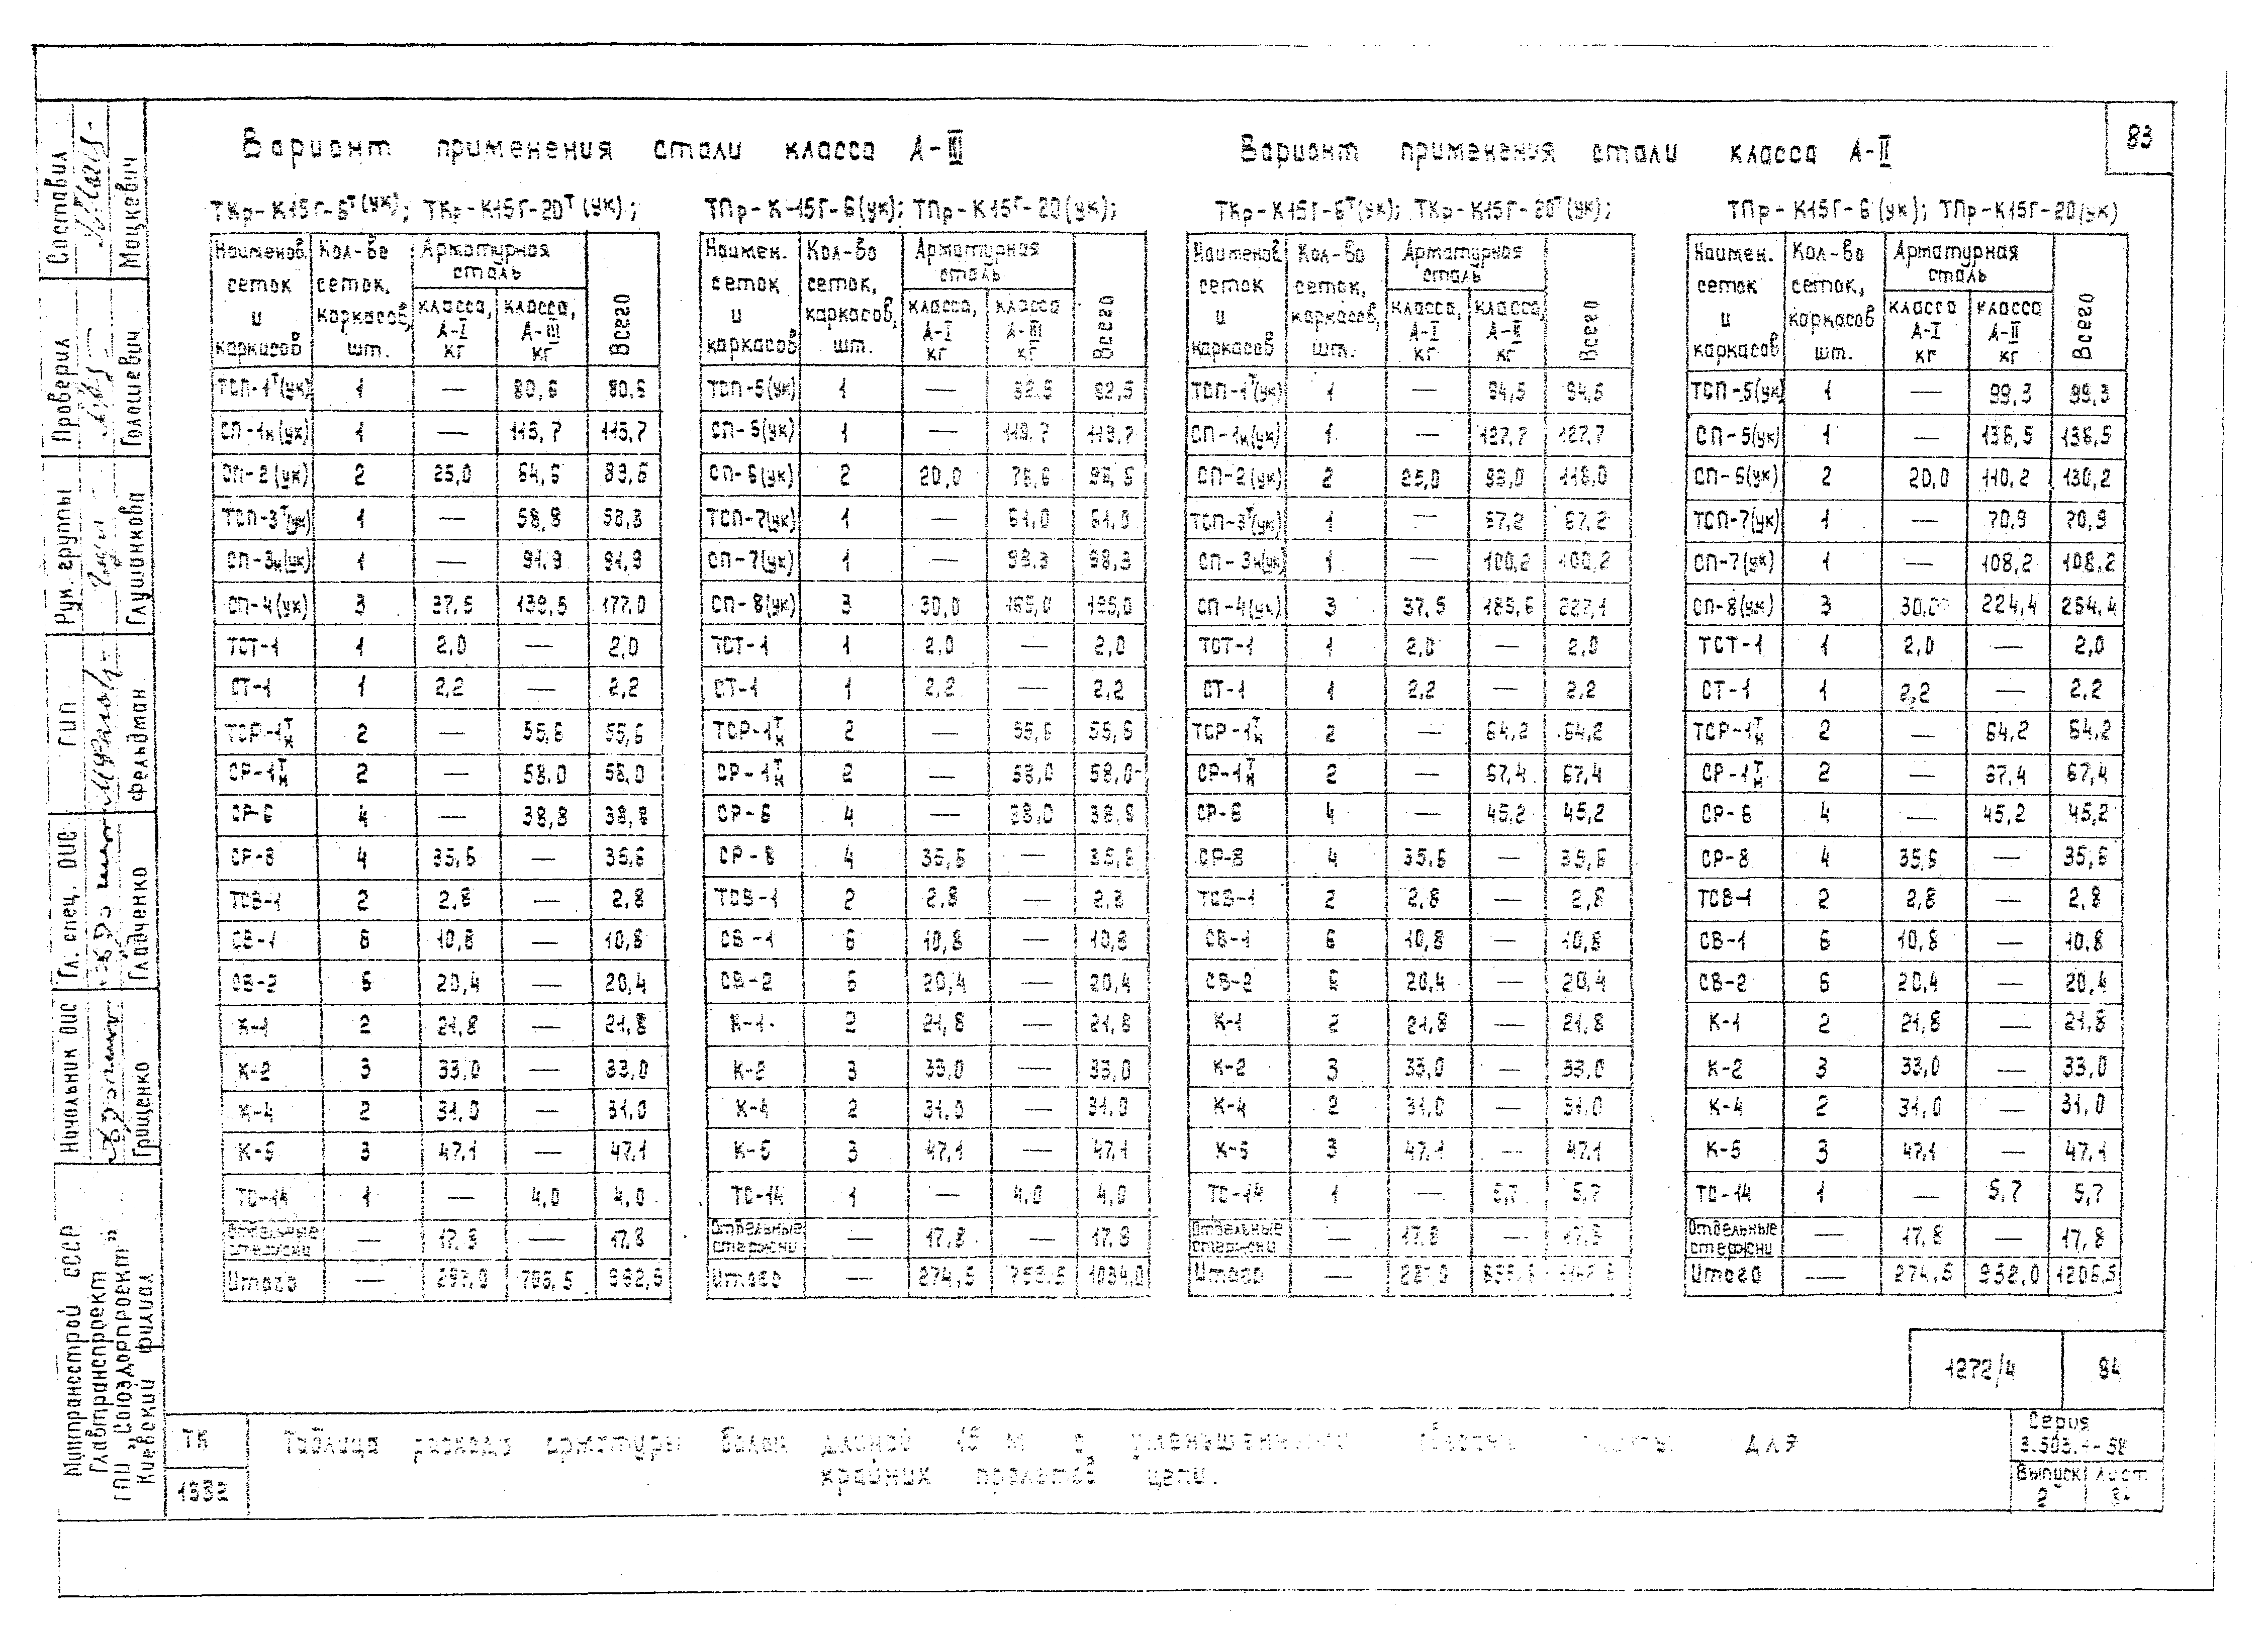 83
Вариант применения стали класса А-III
Вариант применения стали класса А-II
ТКр-К15Г-6Т(ук); ТКр-К15Г-20Т(ук);
Наименов. сеток и каркасов | Кол-во сеток, каркасов, шт. | Арматурная сталь | Всего
класса, А-I кг | класса, А-III кг
ТСП-1Т(ук) 1 — 80,6 80,6
СП-1к(ук) 1 — 115,7 115,7
СП-2(ук) 2 25,0 64,6 89,6
ТСП-3Т(ук) 1 — 58,8 58,8
СП-3к(ук) 1 — 91,9 91,9
СП-4(ук) 3 37,5 139,5 177,0
ТСТ-1 1 2,0 — 2,0
СТ-1 1 2,2 — 2,2
ТСР-1Тк 2 — 55,6 55,6
СР-1Тк 2 — 58,0 58,0
СР-6 4 — 38,8 38,8
СР-8 4 35,6 — 35,6
ТСВ-1 2 2,8 — 2,8
СВ-1 6 10,8 — 10,8
СВ-2 6 20,4 — 20,4
К-1 2 21,8 — 21,8
К-2 3 33,0 — 33,0
К-4 2 31,0 — 31,0
К-5 3 47,1 — 47,1
ТС-14 1 — 4,0 4,0
Отдельные стержни — 17,8 — 17,8
Итого —
ТПр-К-15Г-6(ук); ТПр-К15Г-20(ук);
Наимен. сеток и каркасов | Кол-во сеток, каркасов, шт. | Арматурная сталь | Всего
класса, А-I кг | класса А-III кг
ТСП-5(ук) 1 — 92,5 92,5
СП-5(ук) 1 — 119,7 119,7
СП-6(ук) 2 20,0
ТСП-7(ук) 1 — 61,0 61,0
СП-7(ук) 1 — 98,3 98,3
СП-8(ук) 3 30,0 165,0 195,0
ТСТ-1 1 2,0 — 2,0
СТ-1 1 2,2 — 2,2
ТСР-1Тк 2 — 55,6 55,6
СР-1Тк 2 — 58,0 58,0
СР-6 4 — 38,8
СР-8 4 35,6 — 35,6
ТСВ-1 2 2,8 — 2,8
СВ-1 6 10,8 — 10,8
СВ-2 6 20,4 — 20,4
К-1 2 21,8 — 21,8
К-2 3 33,0 — 33,0
К-4 2 31,0 — 31,0
К-5 3 47,1 — 47,1
ТС-14 1 — 4,0 4,0
Отдельные стержни — 17,8 — 17,8
Итого — 274,5 1034,0
ТКр-К15Г-6Т(ук); ТКр-К15Г-20Т(ук);
Наименов сеток и каркасов | Кол-во сеток, каркасов, шт. | Арматурная сталь | Всего
класса, А-I кг | класса, А-II кг
ТСП-1Т(ук) 1 — 94,5 94,5
СП-1к(ук) 1 — 127,7 127,7
СП-2(ук) 2 25,0 93,0 118,0
ТСП-3Т(ук) 1 — 67,2 67,2
СП-3к(ук) 1 — 100,2 100,2
СП-4(ук) 3 37,5 227,1
ТСТ-1 1 2,0 — 2,0
СТ-1 1 2,2 — 2,2
ТСР-1Тк 2 — 64,2 64,2
СР-1Тк 2 — 67,4 67,4
СР-6 4 — 45,2 45,2
СР-8 4 35,6 — 35,6
ТСВ-1 2 2,8 — 2,8
СВ-1 6 10,8 — 10,8
СВ-2 6 20,4 — 20,4
К-1 2 21,8 — 21,8
К-2 3 33,0 — 33,0
К-4 2 31,0 — 31,0
К-5 3 47,1 — 47,1
ТС-14 1 — 5,7 5,7
Отдельные стержни — 17,8 — 17,8
Итого —
ТПр-К15Г-6(ук); ТПр-К15Г-20(ук)
Наимен. сеток и каркасов | Кол-во сеток, каркасов шт. | Арматурная сталь | Всего
класса А-I кг | класса А-II кг
ТСП-5(ук) 1 — 99,3 99,3
СП-5(ук) 1 — 136,5 136,5
СП-6(ук) 2 20,0 110,2 130,2
ТСП-7(ук) 1 — 70,9 70,9
СП-7(ук) 1 — 108,2 108,2
СП-8(ук) 3 30,0 224,4 254,4
ТСТ-1 1 2,0 — 2,0
СТ-1 1 2,2 — 2,2
ТСР-1Тк 2 — 64,2 64,2
СР-1Тк 2 — 67,4 67,4
СР-6 4 — 45,2 45,2
СР-8 4 35,6 — 35,6
ТСВ-1 2 2,8 — 2,8
СВ-1 6 10,8 — 10,8
СВ-2 6 20,4 — 20,4
К-1 2 21,8 — 21,8
К-2 3 33,0 — 33,0
К-4 2 31,0 — 31,0
К-5 3 47,1 — 47,1
ТС-14 1 — 5,7 5,7
Отдельные стержни — 17,8 — 17,8
Итого — 274,5 932,0 1206,5
1272/4 84
ТК
1982
Таблица расхода арматуры балок длиной 15 м с для
крайних пролетов цепи.
Серия
3.503.1-58
Выпуск Лист
2
Составил Мацкевич
Проверил Голошевич
Рук. группы Глушанкова
ГИП Фельдман
Гл. спец. ОИС Гладченко
Начальник ОИС Грищенко
Минтрансстрой СССР
Главтранспроект
ГПИ „Союздорпроект"
Киевский филиал